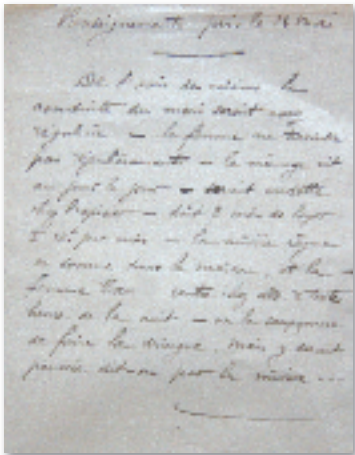 Renseignements pris le 14 Mai
De l'avis des voisins la
conduite du mari serait assez
régulière — la femme ne travaille
pas régulièrement — le ménage vit
au jour le jour — serait endetté
chez — doit 2 mois de loyer
par mois — la misère règne
en somme dans la maison, et la
femme rentre chez elle à toute
heure de la nuit — on la soupçonne
de faire la noce, mais y serait
poussée dit-on par la misère ...